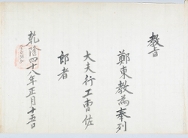 教旨
鄭東教為奉列
大夫行工曹佐
郎者
乾隆四十八年正月十五日